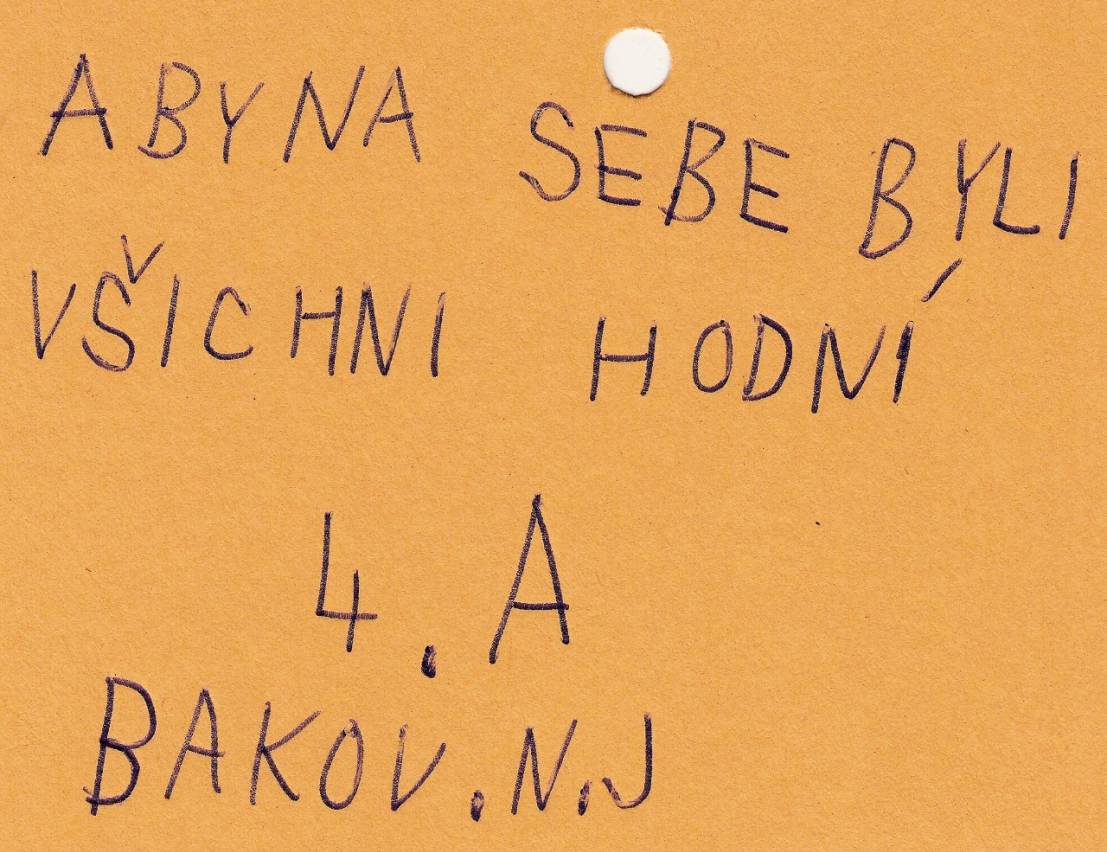 ABY NA SEBE BYLI
VŠICHNI HODNÍ
4. A
BAKOV.N.J